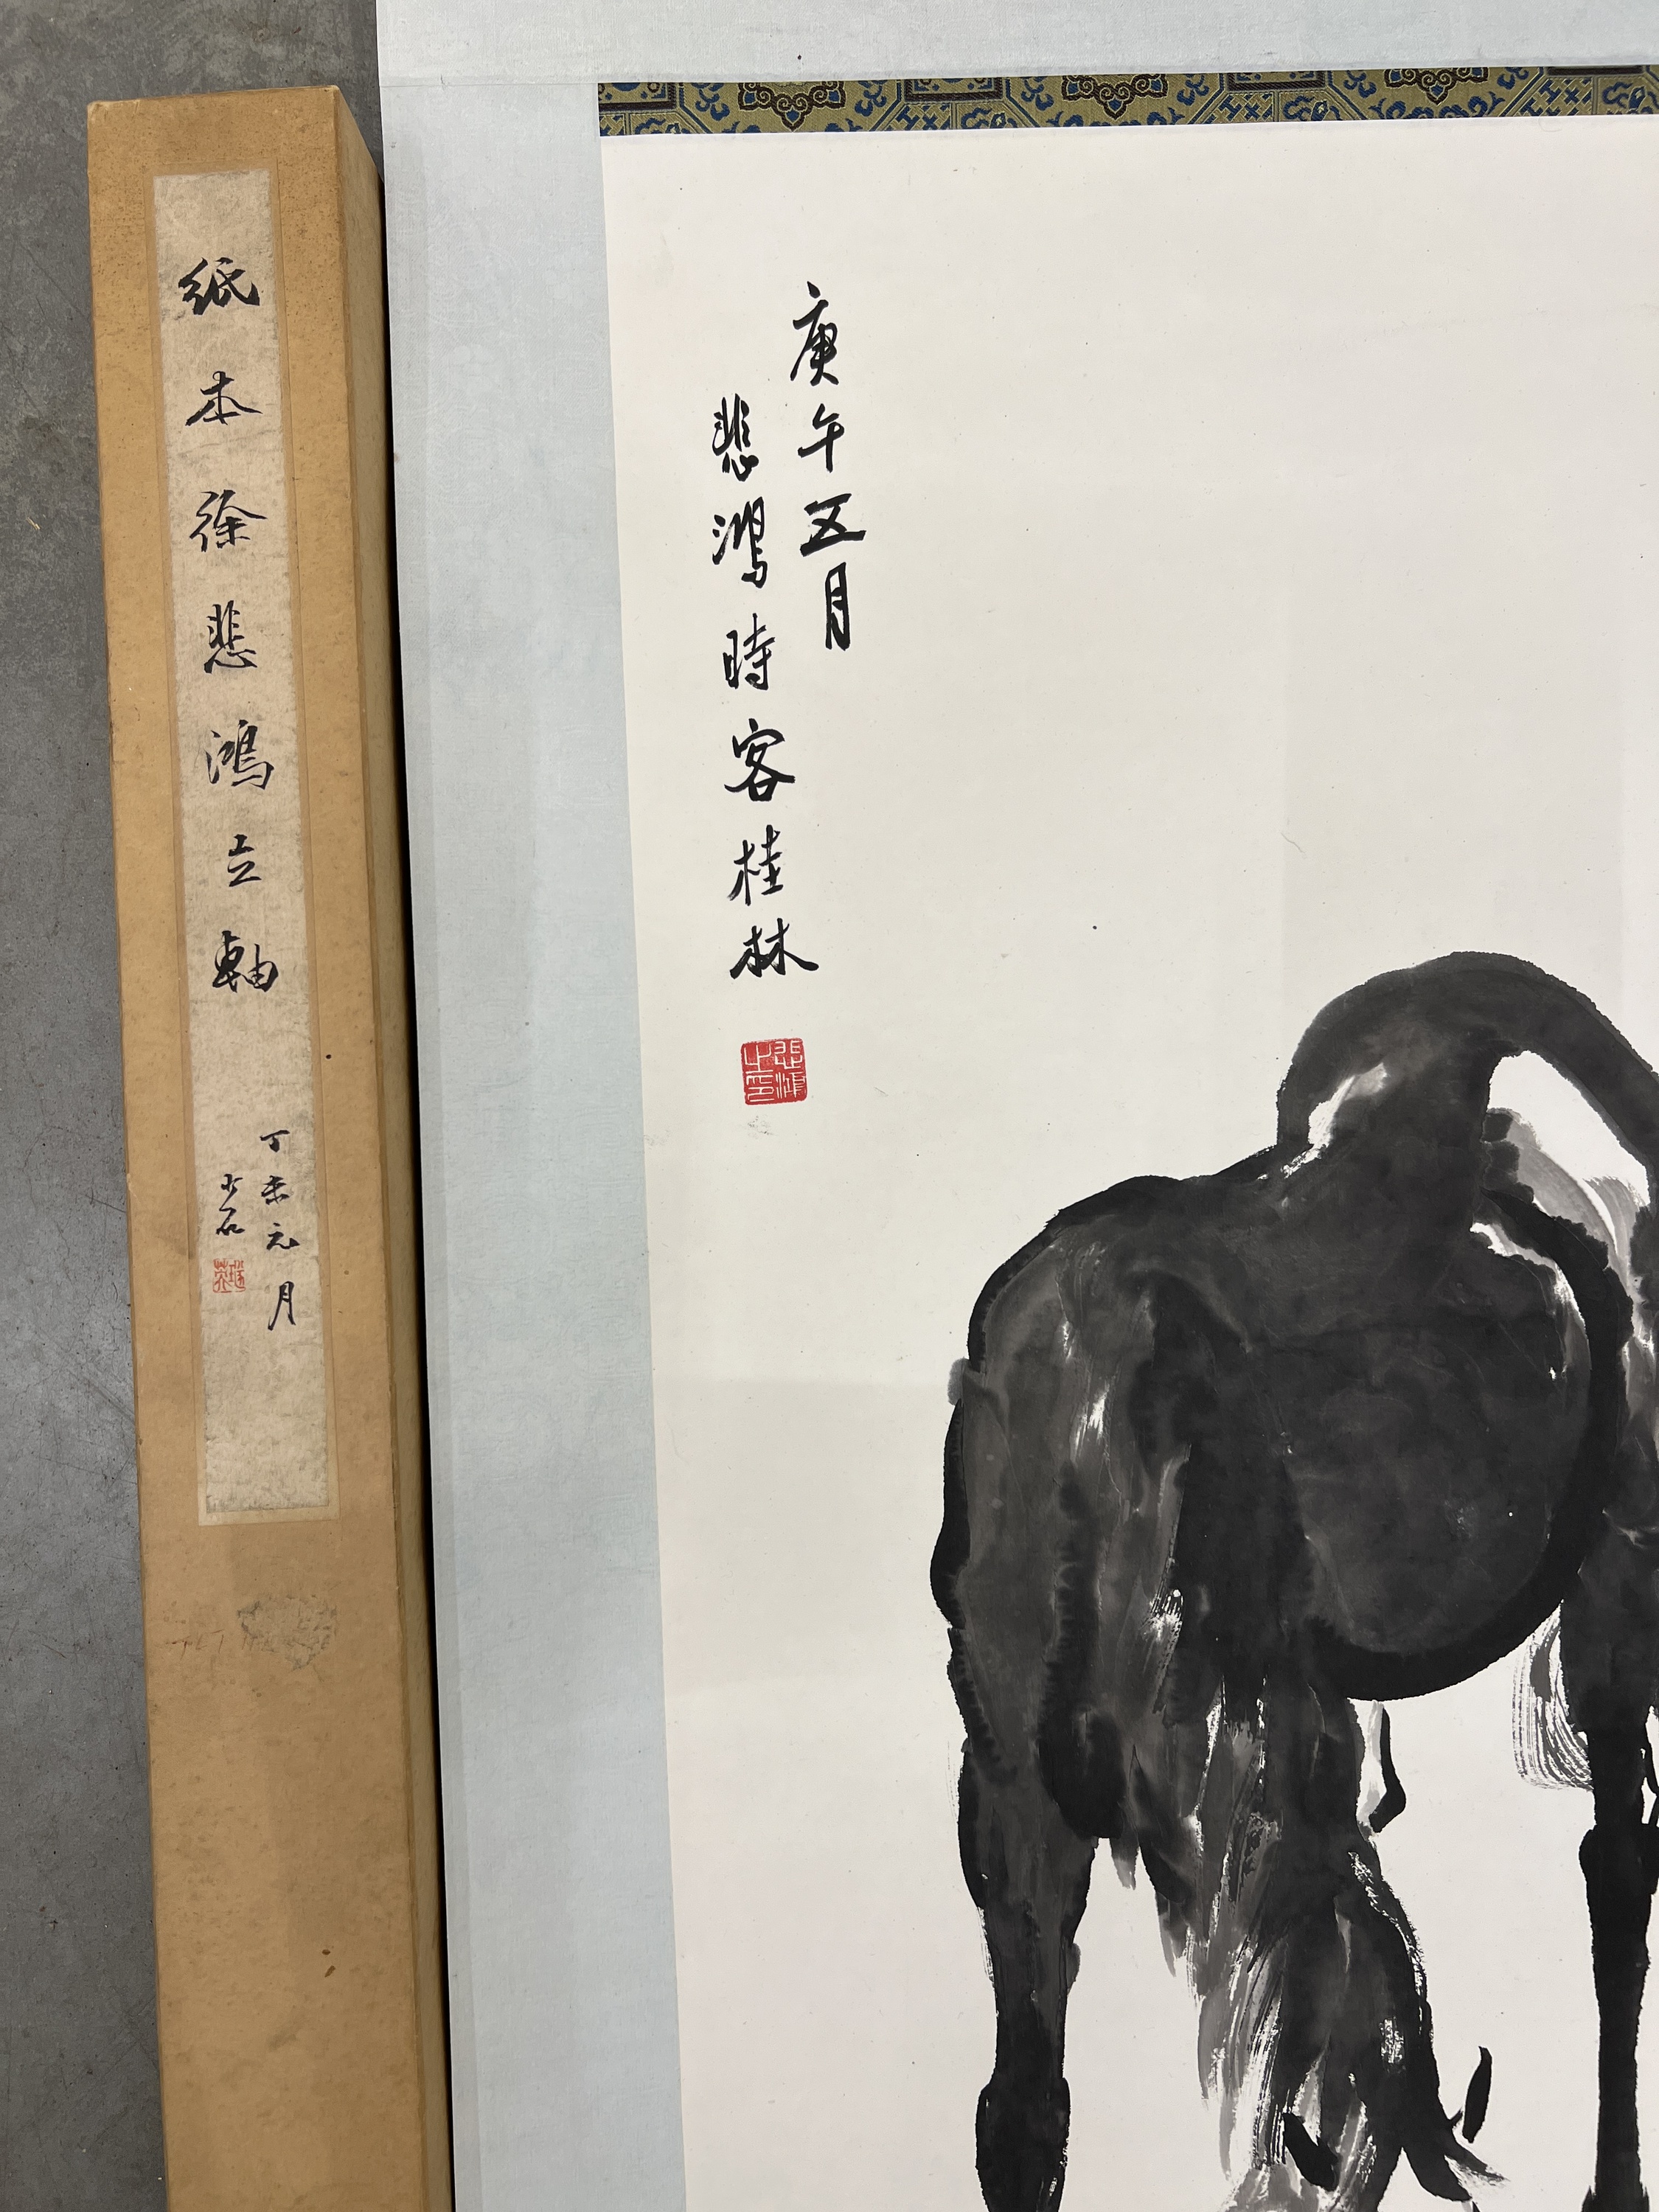 紙本徐悲鴻立軸
丁未元月
少石
庚午五月
悲鴻時客桂林
悲鴻之印